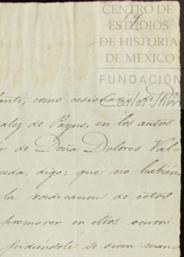 CENTRO DE
ESTUDIOS
DE HISTORIA
DE MEXICO
FUNDACIÓN
como cesiona
alez de Payno, en los autos
de Doña Dolores Val
digo: que no habien
la radicacion de estos
promover en ellos ocurri
pidiendole se sirva man